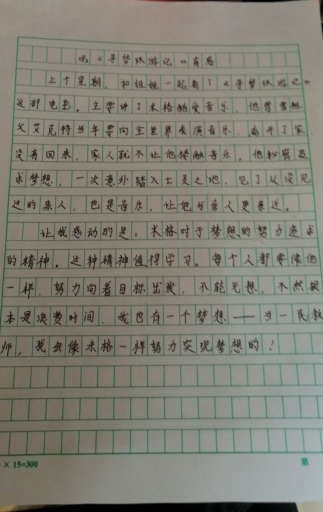 观《寻梦环游记》有感
上个星期，和姐姐一起看了《寻梦环游记》
这部电影。主要讲了米格酷爱音乐，他曾曾祖
父艾克特当年要向全世界表演音乐，离开了家
没有回来，家人就不让他接触音乐。他秘密追
求梦想，一次意外踏入亡灵之地，见了从没见
过的亲人，也是音乐，让他与家人更亲近。
让我感动的是，米格对于梦想的努力追求
的精神。这种精神值得学习。每个人都要像他
一样，努力向着目标出发，不能光想，不然根
本是浪费时间，我也有一个梦想——当一民教
师，我会像米格一样努力实现梦想的！
× 15=300
第